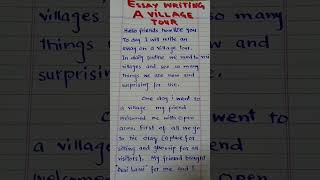 ESSAY WRITING
A VILLAGE
TOUR
Hello friends how are you
To day I will write an
essay on a village tour.
In daily routine we need to visit
villages and see so many
things we are new and
surprising for we.
One day I went to
a village my friend
welcomed me with open
arms. First of all we go
to his
sitting and gossip for all
visitors). My friend bought
Desi Lassi for me and I
villages
so many
things
and
surprising
went to
a village